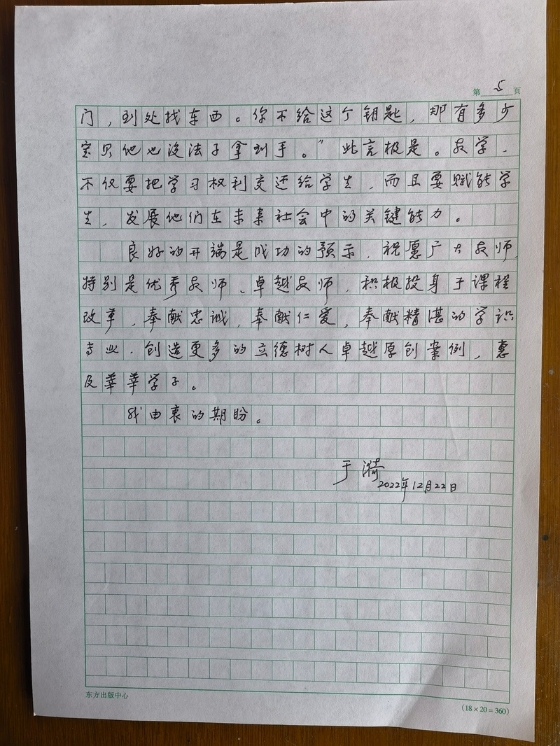 第 5 页
门，到处找东西。你不给这个钥匙，那有多少
宝贝他也没法子拿到手。”此言极是。教学，
不仅要把学习权利交还给学生，而且要赋能学
生，发展他们在未来社会中的关键能力。
良好的开端是成功的预示，祝愿广大教师，
特别是优秀教师、卓越教师，积极投身于课程
改革，奉献忠诚，奉献仁爱，奉献精湛的学识
专业，创造更多的立德树人卓越原创案例，惠
及莘莘学子。
我由衷的期盼。
于漪
2022年12月22日
东方出版中心
(18×20=360)